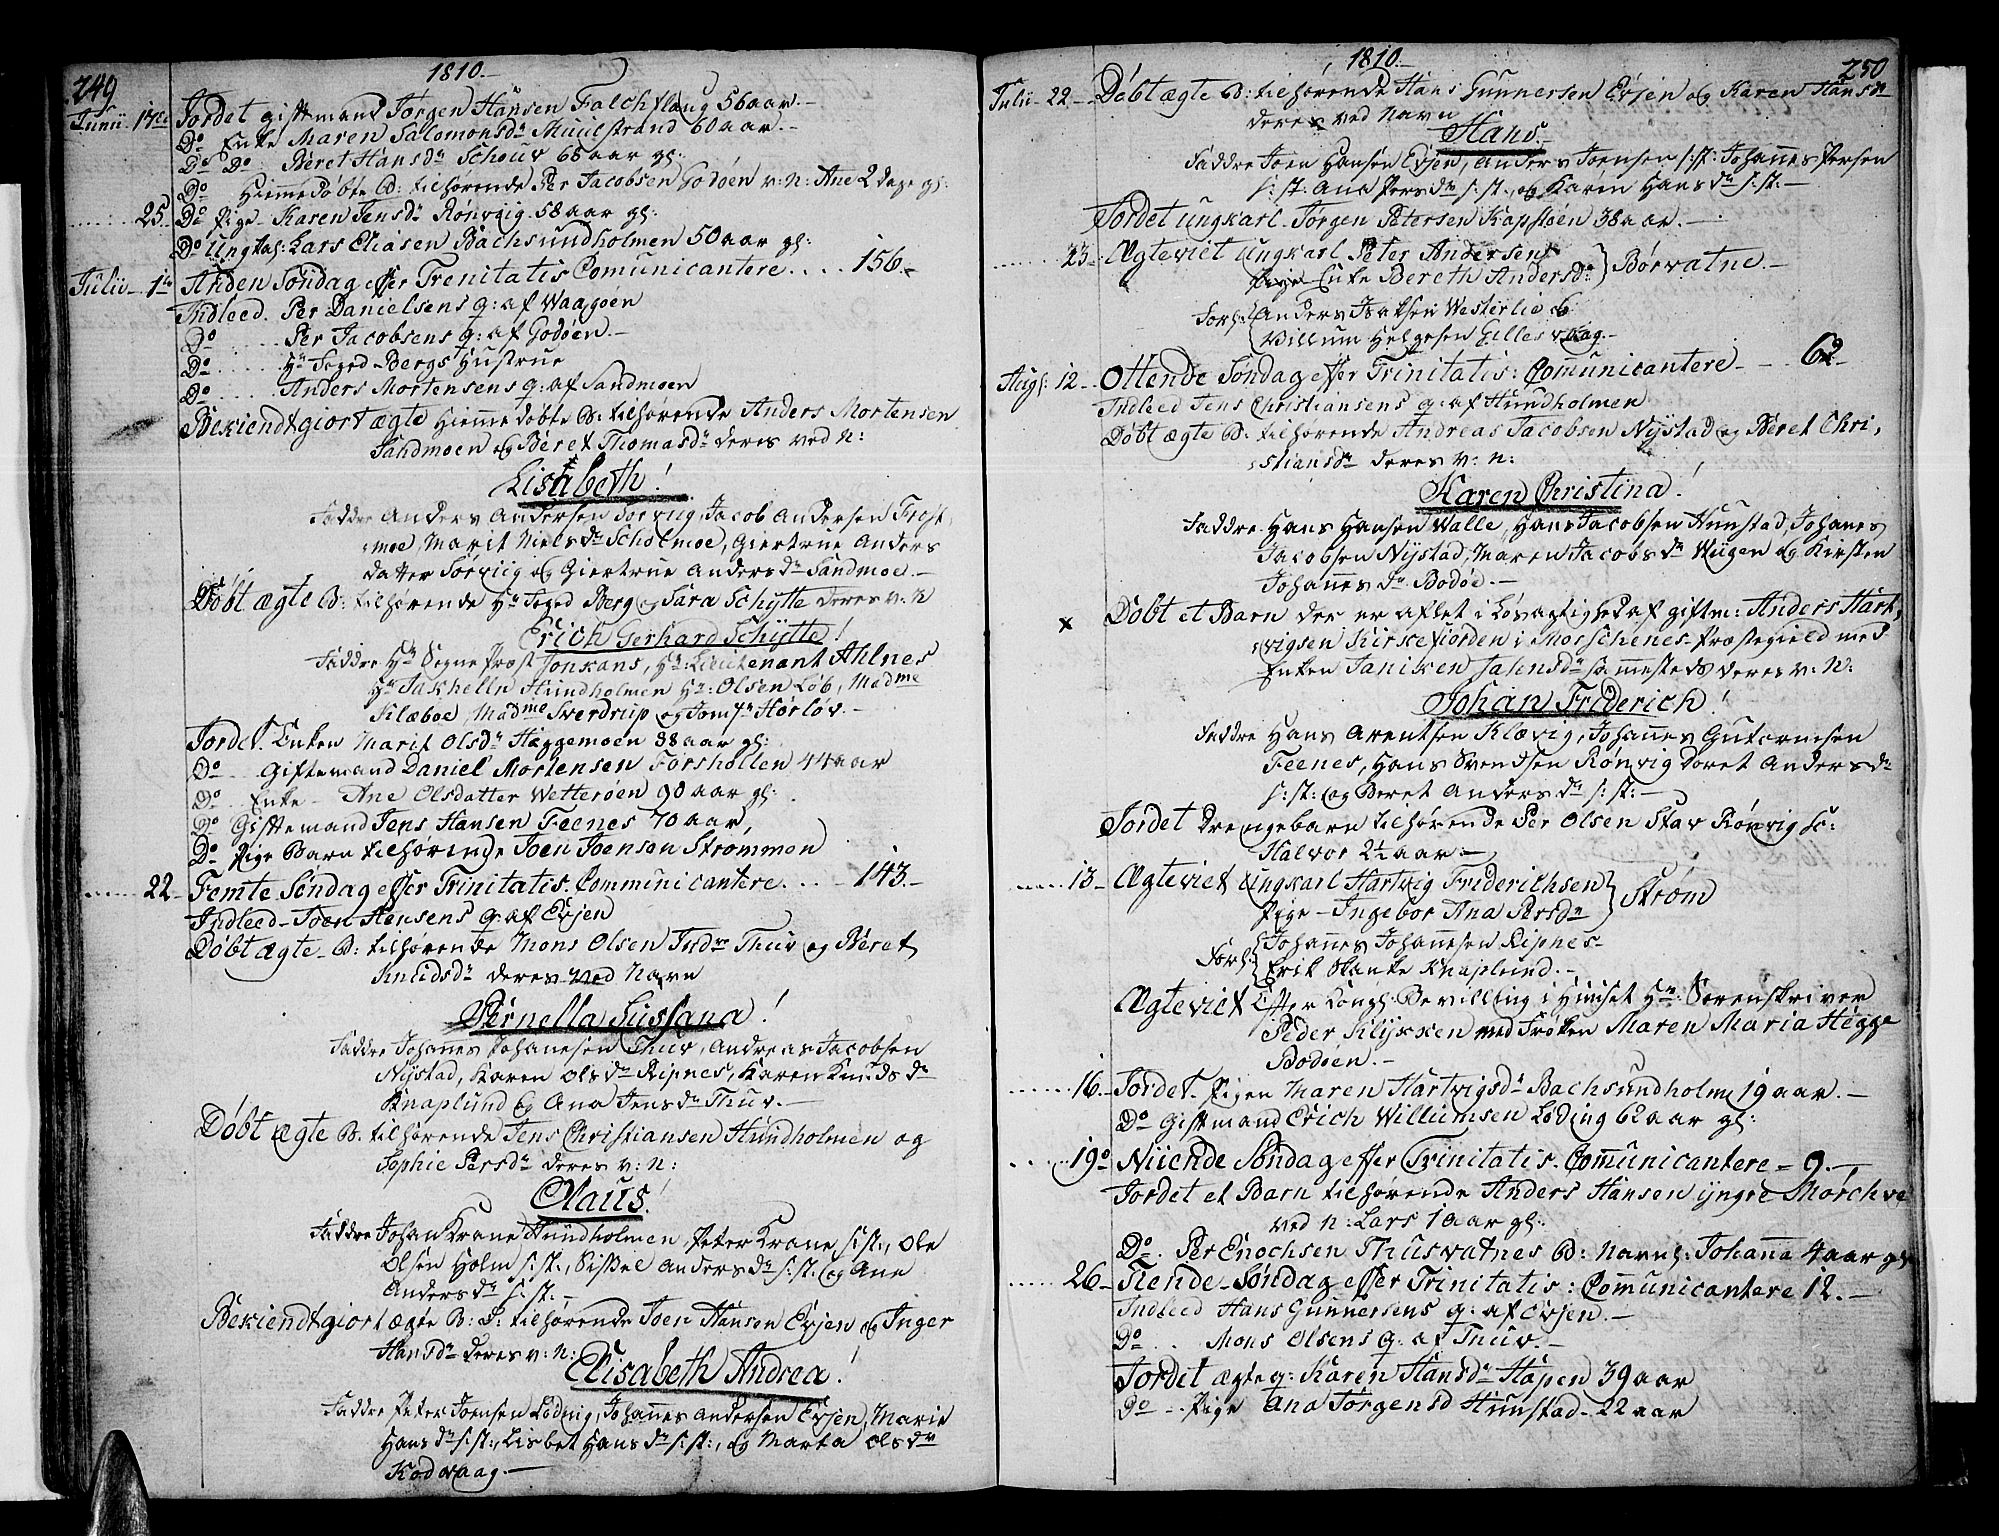 249
1810.
Junii 17de Jordet giftmand Jørgen Hansen Falchflaug 56 aar.
Do Enke Maren Salomonsdr Muulstrand 60 aar.
Do Do Beret Hansdr Schouv 68 aar gl:
Do Hiemedøbte B: tilhørende Per Jacobsen Godøen v: n: Ane 2 dage gl:
25 Do Pige Karen Jensdr Rønvig 58 aar gl:
Do Ungkal: Lars Eliasen Bachsundholmen 50 aar gl:
Julii 1te Anden Søndag efter Trenitatis Comunicantere .... 156.
Indleed. Per Danielsens q: af Waagøen
Do ..... Per Jacobsens q: af Godøen.
Do ..... Hr Foged Bergs Hustrue
Do ..... Anders Mortensens q: af Sandmoen
Bekiendtgiort ægte Hiemmedøbte B: tilhørende Anders Mortensen
Sandmoen og Beret Thomasdr deres ved N:
Lisabeth!
Faddre Anders Andersen Sørvug, Jacob Andersen Trost,
moe, Marit Nielsdr Scholmoe, Giertrue Anders
datter Sørviig og Giertrue Andersdr Sandmoe.
Døbt ægte B: tilhørende Hr Foged Berg og Sara Schytte deres v: n
Erich Gerhard Schytte!
Faddre Hr Sognepræst Jonkans, Hr: Lieutenant Ahlnes
Hr Jakhelln Hundholmen Hr: Olsen Løb, Madme
Klæboe, Madme Sverdrup og Jomfr Horløv.
Jordet. Enken Marit Olsdr Heggemoen 88 aar gl:
Do Giftemand Daniel Mortensen Forshollen 44 aar
Do Enke Ane Olsdatter Wetterøen 90 aar gl:
Do Giftemand Jens Hansen Feenes 70 aar,
Do Pige Barn tilhørende Joen Joensen Strømmen
22 Femte Søndag efter Trinitatis. Communicantere .... 143.
Indleed Joen Hansens q: af Evjen
Døbt ægte B: tilhørende Mons Olsen Indr Thuv og Beret
Knudsdr deres Ved Navn
Pernella Sussana!
Faddre Johannes Johanesen Thuv, Andreas Jacobsen
Nystad, Karen Olsdr Ripnes, Karen Knudsdr
Knaplund og Ana Jensdr Thuv.
Døbt ægte B: tilhørende Jens Christiansen Hundholmen og
Sophie Persdr deres v: n:
Claus!
Faddre Johan Krane Hundholmen, Peter Krane s:st:, Ole
Olsen Holm s:st:, Sissel Andersdr s:st: og Ane
Andersdr s:st:
Bekiendtgiort ægte B: D: tilhørende Joen Hansen Evjen og Inger
Hansdr deres v: n:
Elisabeth Andrea!
Faddre Peter Joensen Lødnig, Johannes Andersen Evjen, Marie
Hansdr s:st:, Lisbet Hansdr s:st:, og Marta Olsdr
Kodvaag.
1810.
250
Julii 22 Døbt ægte B: tilhørende Hans Gunnersen Evjen og Karen Hansdr
deres ved Navn
Hans
Faddre Joen Hansen Evjen, Anders Joensen s:st: Johannes Persen
s:st: Ana Persdr s:st:, og Karen Hansdr s:st:
Jordet ungkarl Jørgen Petersen Kapstøen 38 aar.
23 Ægteviet ungkarl Peter Andersen
Enke Bereth Andersdr Børvatne.
Forl: Anders Isaksen Westerlie og
Willum Helgesen Gillesvaag.
Augl: 12 Ottende Søndag efter Trinitatis: Comunicantere 62
Indleed Jens Christiansens q: af Hundholmen
Døbt ægte B: tilhørende Andreas Jacobsen Nystad og Beret Chri,
stiansdr deres v: n:
Karen Christina!
Faddre Hans Hansen Walle, Hans Jacobsen Hunstad, Johanes
Jacobsen Nystad, Maren Jacobsdr Wugen og Kirsten
Johannesdr Bodøe.
x Døbt et Barn der er aflet i Løsagtighed af giftm: Anders Hart,
vigsen Kirkefiorden i Moschenes Præstegield med
Enken Janiken Jahnsdr sammesteds deres v: N:
Johan Friderich!
Faddre Hans Arentsen Klævig, Johannes Gutormsen
Feenes, Hans Svendsen Rønvig Doret Andersdr
s:st: og Beret Andersdr s:st:
Jordet Drengebarn tilhørende Per Olsen Stav Rønvig
Halvor 2½ aar
13 Ægteviet ungkarl Hartvig Friderichsen
Pige Ingebor Ana Persdr Strøm
Forl: Johannes Johannesen Ripnes
Erik Hanke Knaplund.
Ægteviet Efter Kongl: Bevilling i Huuset Hr: Sorenskriver
Peder Klykken ved Frøken Maren Maria Hegge
Bodøen.
16 Jordet. Pigen Maren Hartvigsdr Bachsundholm 19 aar.
Do Giftmand Erich Willumsen Løding 62 aar gl:
19o Niiende Søndag efter Trinitatis. Communicantere 9.
Jordet et Barn tilhørende Anders Hansen yngre Mørchve
ved n: Lars 1 aar gl:
Do Per Enochsen Thusvatnes B: Navnl: Johanna 4 aar gl
26 Tiende Søndag efter Trinitatis: Communicantere 12.
Indleed Hans Gunnersens q: af Evjen.
Do Mons Olsens q: af Thuv.
Jordet ægte q: Karen Hansdr Hopen 39 aar
Do Pige Ana Jørgensd Hunstad 22 aar